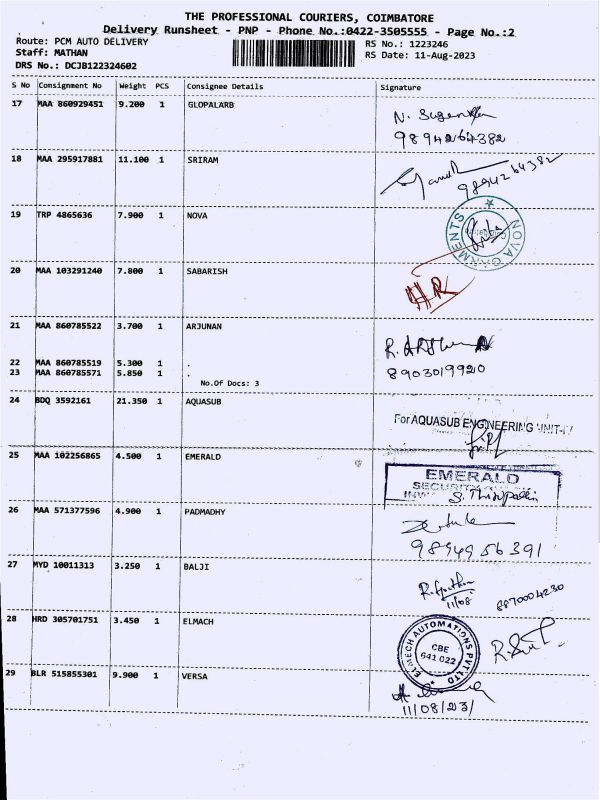 THE PROFESSIONAL COURIERS, COIMBATORE
Delivery Runsheet - PNP - Phone No.:0422-3505555 - Page No.:2
Route: PCM AUTO DELIVERY
RS No.: 1223246
Staff: MATHAN
RS Date: 11-Aug-2023
DRS No.: DCJB122324602
S No Consignment No Weight PCS Consignee Details Signature
17 MAA 860929451 9.200 1 GLOPALARB
9894264382
18 MAA 295917881 11.100 1 SRIRAM
9894264382
19 TRP 4865636 7.900 1 NOVA
NOVA GARMENTS
20 MAA 103291240 7.800 1 SABARISH
21 MAA 860785522 3.700 1 ARJUNAN
22 MAA 860785519 5.300 1 .
23 MAA 860785571 5.850 1 .
8903019920
No.Of Docs: 3
24 BDQ 3592161 21.350 1 AQUASUB
For AQUASUB ENGINEERING UNIT-IV
25 MAA 102256865 4.500 1 EMERALD
EMERALD
SECURITY
26 MAA 571377596 4.900 1 PADMADHY
9894956391
27 MYD 10011313 3.250 1 BALJI
11/08
8870004230
28 HRD 305701751 3.450 1 ELMACH
ELMECH AUTOMATIONS PVT LTD
CBE
641 022
29 BLR 515855301 9.900 1 VERSA
11/08/23/